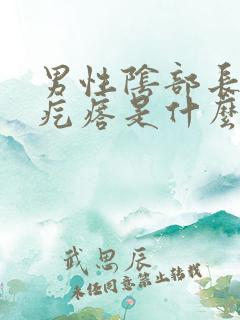 男性陰部長
疙瘩是什麼
武思辰
未經同意禁止轉載